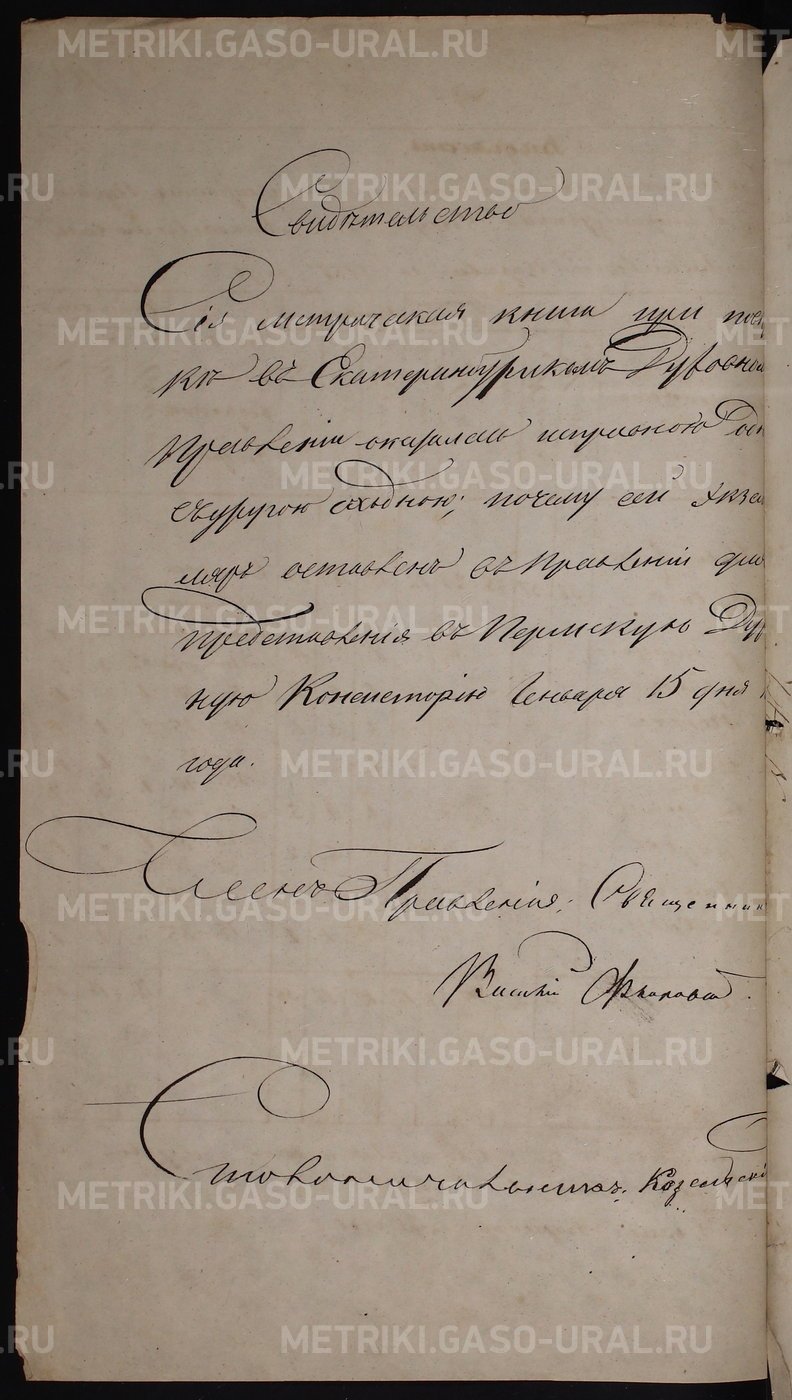 Свидѣтельство
Сія Метрическая книга при повѣ
кѣ въ Екатеринбургскомъ Духовном
Правленіи оказалась исправною одн
съ другою сходною; почему сей Экзем
пляръ оставленъ въ Правленіи для
представленія въ Пермскую Дух
ную Консисторію Генваря 15 дня
года.
Членъ Правленія: Священник
Василій
Столоначальникъ:
METRIKI.GASO-URAL.RU